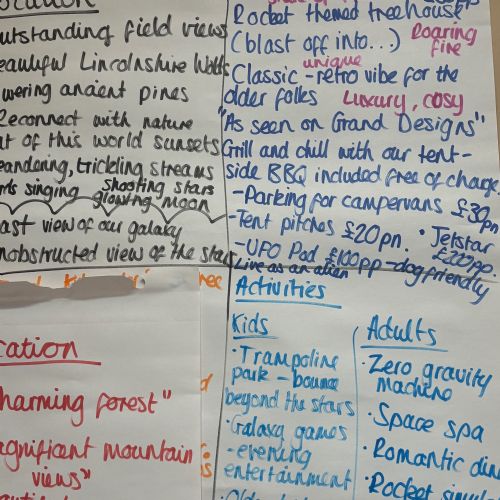 outstanding field views
Beautiful Lincolnshire Wolds
towering ancient pines
Reconnect with nature
out of this world sunsets
meandering, trickling streams
singing shooting stars
glowing moon
vast view of our galaxy
unobstructed view of the stars
Rocket themed treehouse
(blast off into...) Roaring
fire
unique
Classic - retro vibe for the
older folks Luxury, cosy
"As seen on Grand Designs"
Grill and chill with our tent-
side BBQ included free of charge
- Parking for campervans £30pn
- Tent pitches £20pn. • Jetstar
£200pp
- UFO Pod £100pp - dog friendly
Live as an alien
cation
"harming forest"
agnificent mountain
views"
Activities
Kids
• Trampoline
park - bounce
beyond the stars
• Galaxy games
- evening
entertainment
Adults
• Zero gravity
machine
• Space spa
• Romantic din
• Rocket simu